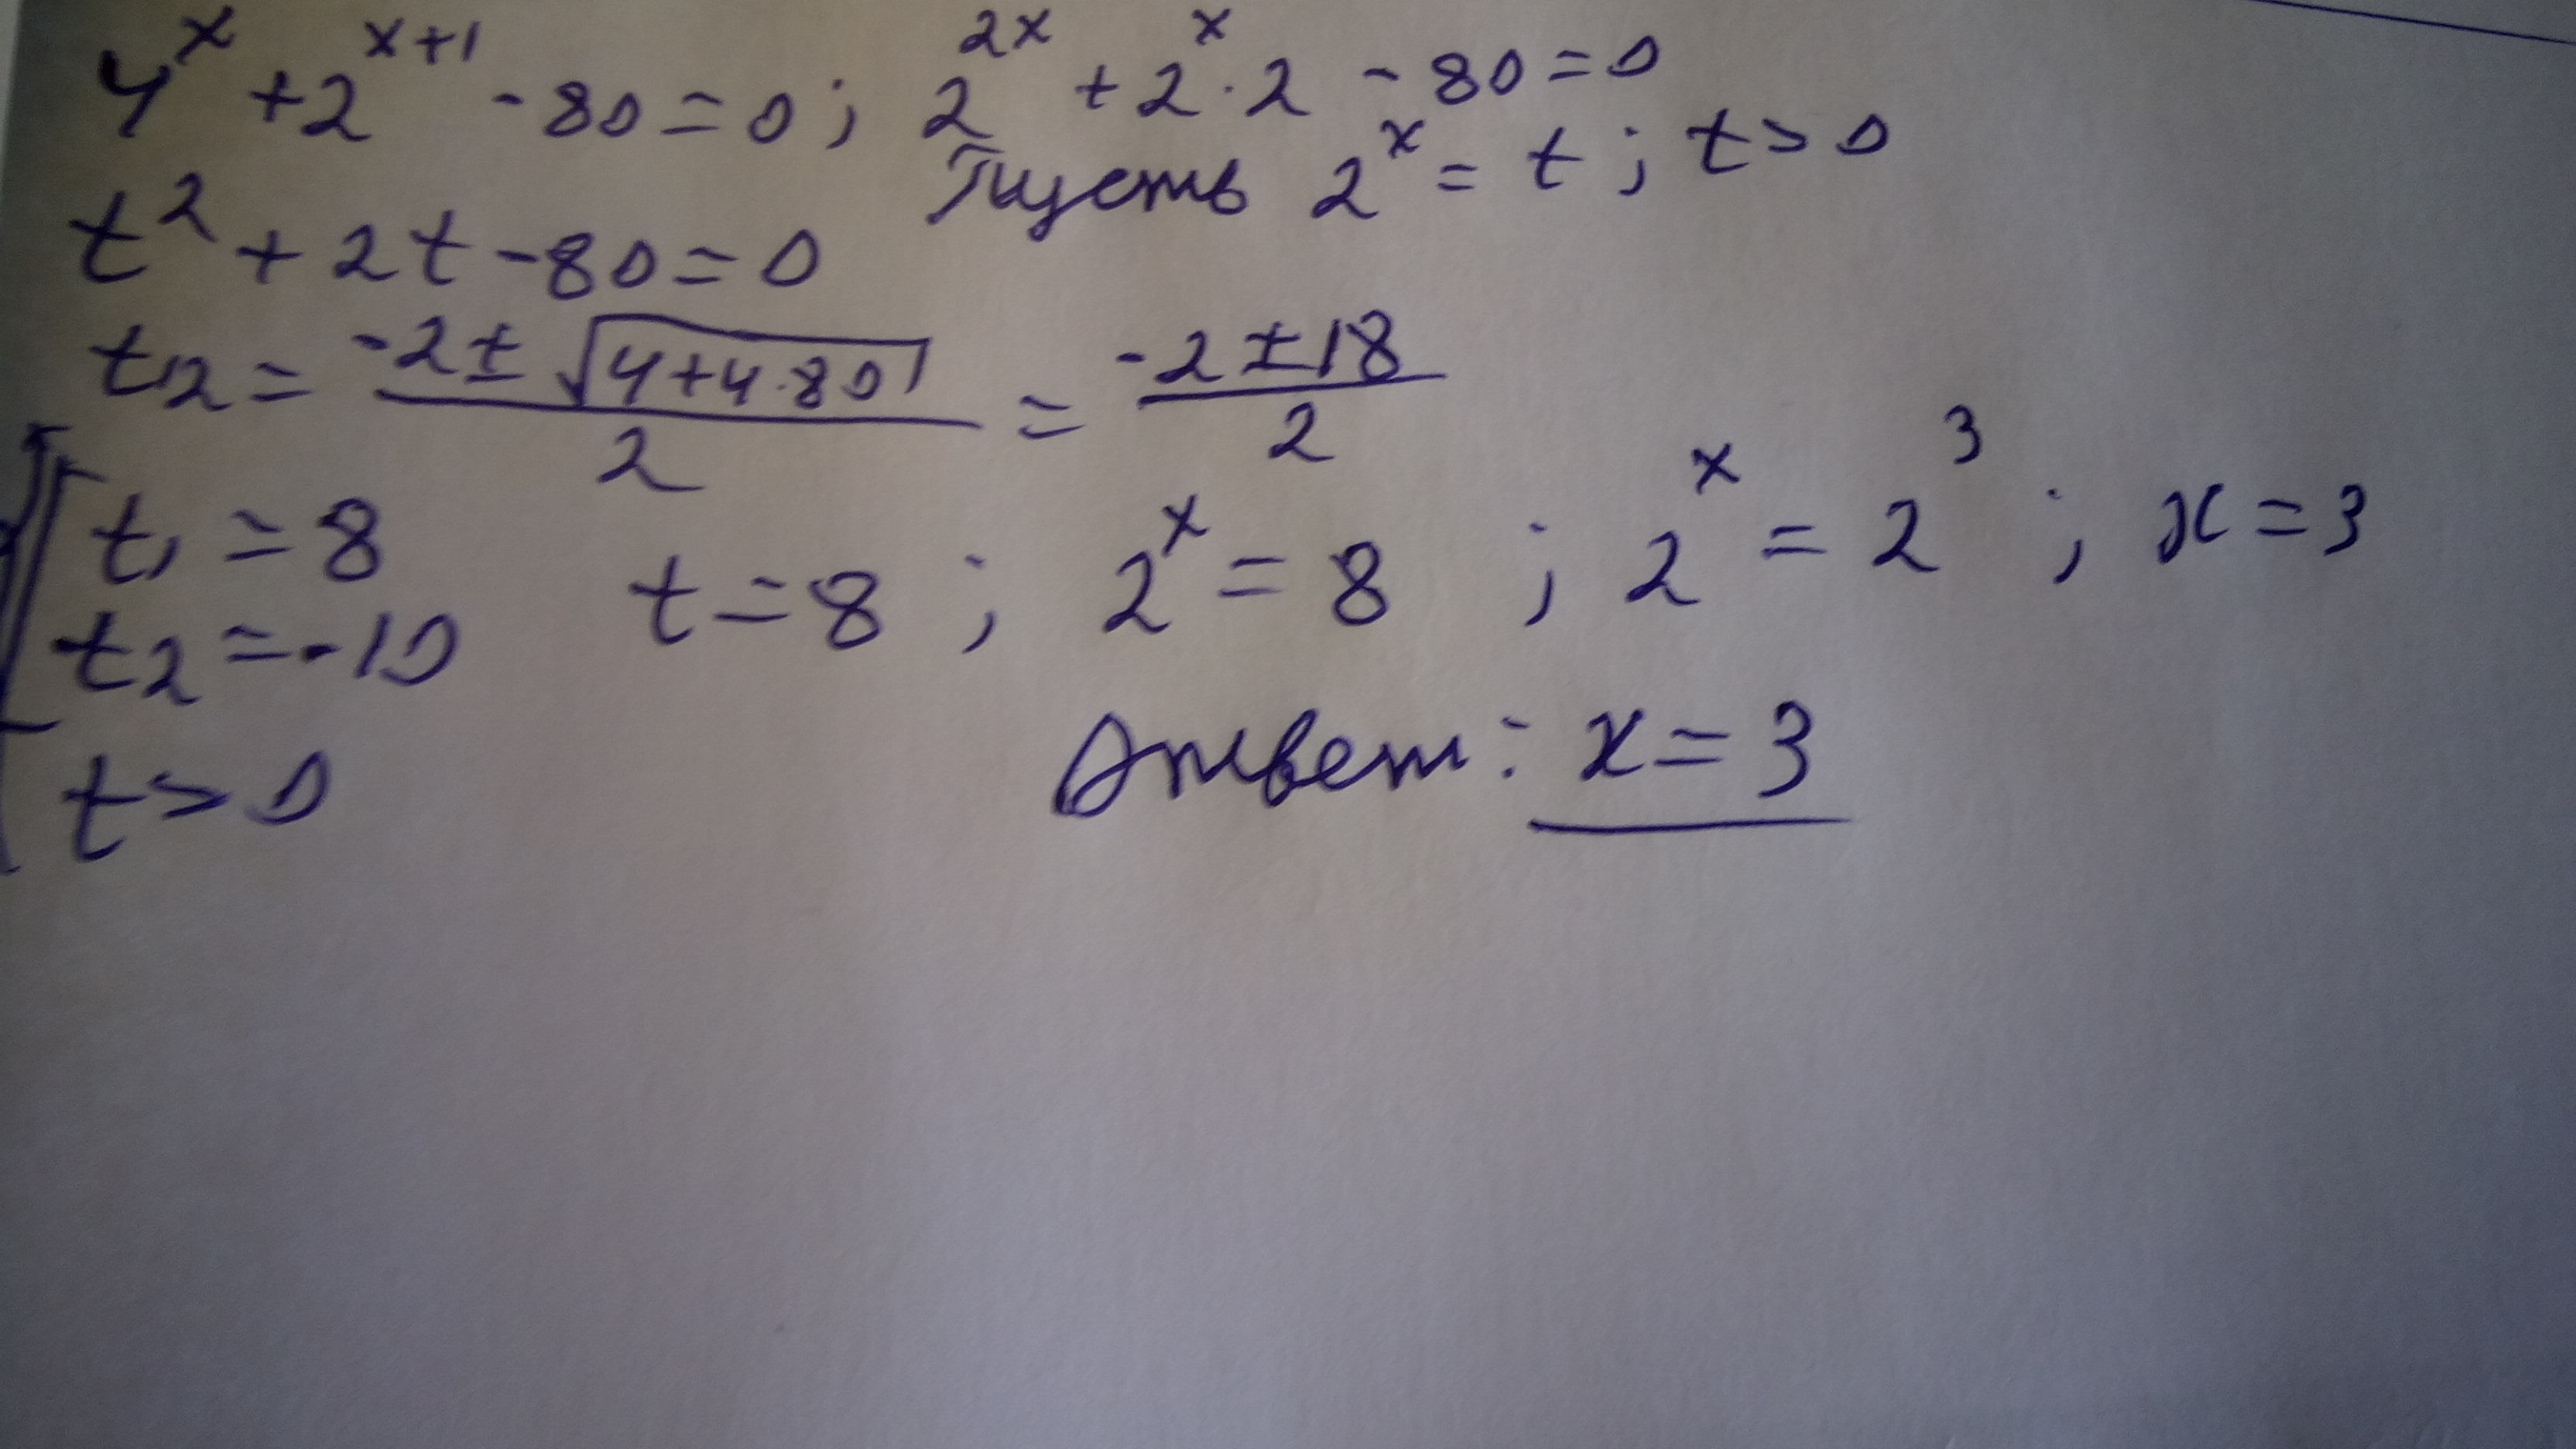 4^x + 2^(x+1) - 80 = 0 ; 2^(2x) + 2^x · 2 - 80 = 0
Пусть 2^x = t ; t > 0
t² + 2t - 80 = 0
t₁₂ = (-2 ± √(4+4·80))/2 = (-2 ± 18)/2
t₁ = 8
t₂ = -10
t > 0
t = 8 ; 2^x = 8 ; 2^x = 2³ ; x = 3
Ответ: x = 3